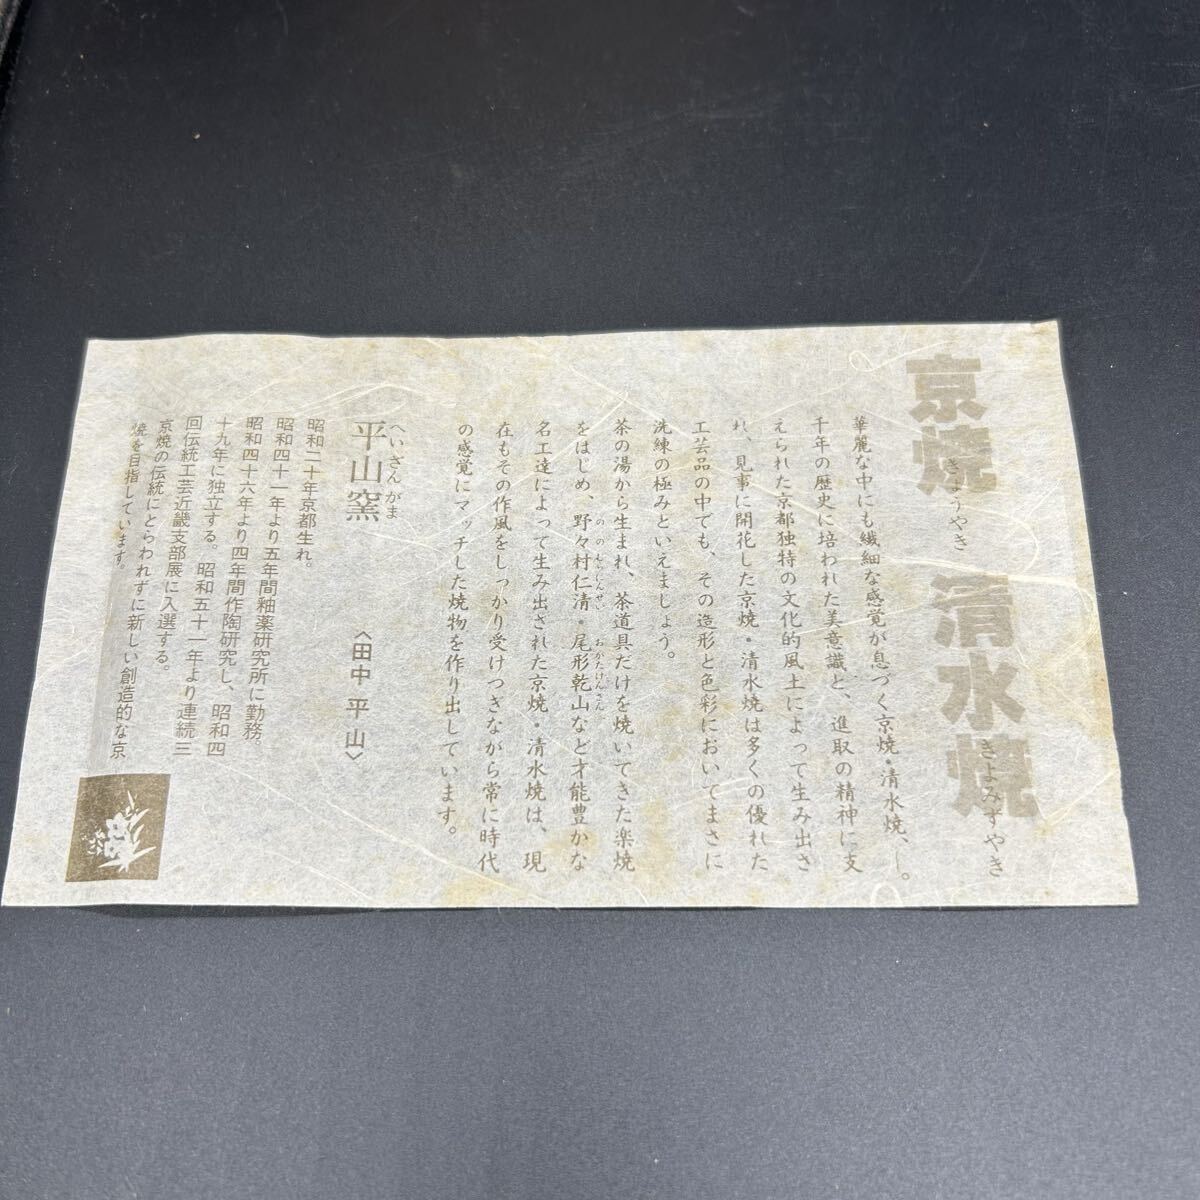 京焼 清水焼
きょうやき きよみずやき
華麗な中にも繊細な感覚が息づく京焼・清水焼、―。
千年の歴史に培われた美意識と、進取の精神に支
えられた京都独特の文化的風土によって生み出さ
れ、見事に開花した京焼・清水焼は多くの優れた
工芸品の中でも、その造形と色彩においてまさに
洗練の極みといえましょう。
茶の湯から生まれ、茶道具だけを焼いてきた楽焼
をはじめ、野々村仁清・尾形乾山など才能豊かな
ののむらにんせい おがたけんざん
名工達によって生み出された京焼・清水焼は、現
在もその作風をしっかり受けつぎながら常に時代
の感覚にマッチした焼物を作り出しています。
へいざんがま
平山窯
〈田中 平山〉
昭和二十年京都生れ。
昭和四十一年より五年間釉薬研究所に勤務。
昭和四十六年より四年間作陶研究し、昭和四
十九年に独立する。昭和五十一年より連続三
回伝統工芸近畿支部展に入選する。
京焼の伝統にとらわれずに新しい創造的な京
焼を目指しています。